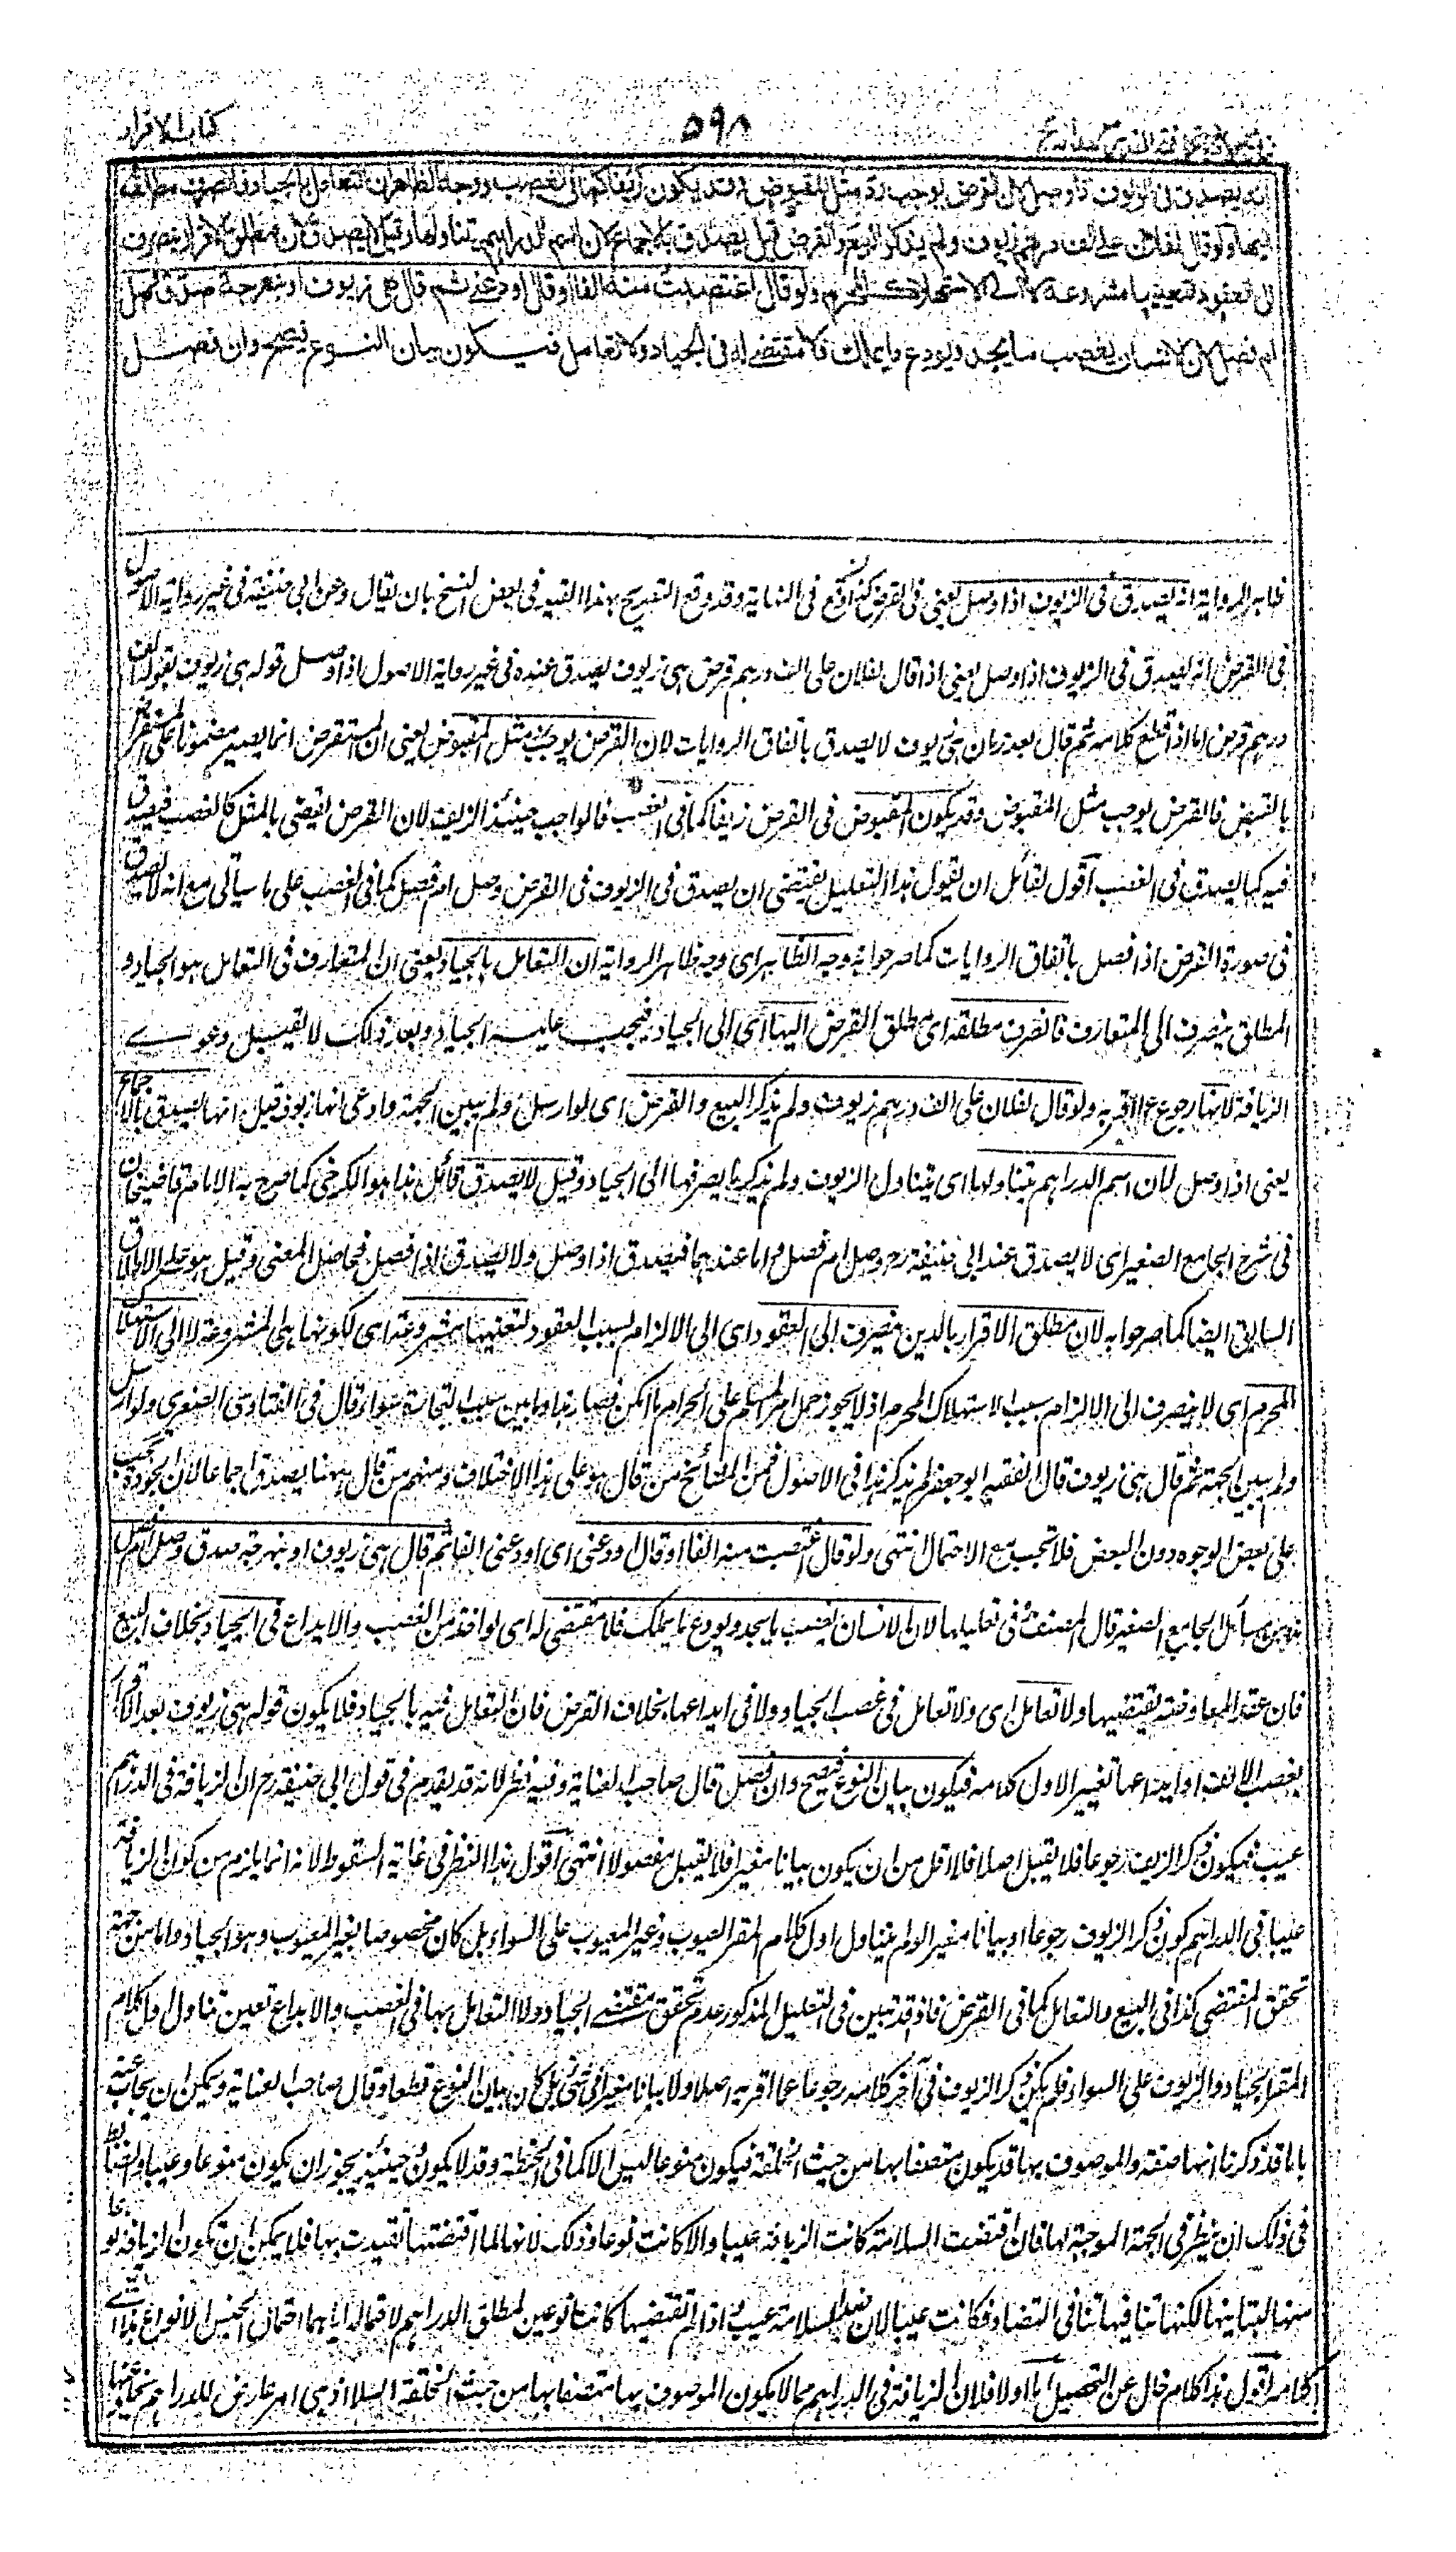 كتاب الاقرار
٥٩٨
انه يصدق فى الزيوف اذا وصل لان القرض يوجب رد مثل المقبوض وقد يكون زيفا كما فى الغصب ووجه الظاهر ان التعامل بالجياد فانصرف مطلقه
اليها ولو قال لفلان على الف درهم زيوف ولم يذكر البيع والقرض قيل يصدق بالاجماع لان اسم الدراهم يتناولها وقيل لا يصدق لان مطلق الاقرار ينصرف
الى العقود لتعينها مشروعة لا الى الاستهلاك المحرم ولو قال اغتصبت منه الفا او قال اودعنى ثم قال هى زيوف او نبهرجة صدق وصل
ام فصل لان الانسان يغصب ما يجد ويودع ما يملك فلا مقتضى له فى الجياد ولا تعامل فيكون بيان النوع فيصح وان فصل
ظاهر الرواية انه يصدق فى الزيوف اذا وصل يعنى فى القرض كذا وقع فى النهاية وقد وقع التصريح بهذا القيد فى بعض النسخ بان يقال وعن ابى حنيفة فى غير رواية الاصول
فى القرض انه يصدق فى الزيوف اذا وصل يعنى اذا قال لفلان على الف درهم قرض هى زيوف يصدق عنده فى غير رواية الاصول اذا وصل قوله هى زيوف بقوله الف
درهم قرض اما اذا قطع كلامه ثم قال بعد زمان هى زيوف لا يصدق باتفاق الروايات لان القرض يوجب رد مثل المقبوض يعنى ان المستقرض انما يصير مضمونا على المستقرض
بالقبض فالقرض يوجب مثل المقبوض وقد يكون المقبوض فى القرض زيفا كما فى الغصب فالواجب حينئذ الزيف لان القرض يقضى بالمثل كالغصب فيصدق
فيه كما يصدق فى الغصب اقول لقائل ان يقول هذا التعليل يقتضى ان يصدق فى الزيوف فى القرض وصل ام فصل كما فى الغصب على ما سيأتى مع انه لا يصدق
فى صورة القرض اذا فصل باتفاق الروايات كما صرحوا به وجه الظاهر اى وجه ظاهر الرواية ان التعامل بالجياد يعنى ان المتعارف فى التعامل هو الجياد و
المطلق ينصرف الى المتعارف فانصرف مطلقه اى مطلق القرض اليها اى الى الجياد فيجب عليه الجياد وبعد ذلك لا يقبل دعوى
الزيافة لانها رجوع عما اقر به ولو قال لفلان على الف درهم زيوف ولم يذكر البيع والقرض اى لو ارسل ولم يبين الجهة وادعى انها زيوف قيل انها يصدق بالاجماع
يعنى اذا وصل لان اسم الدراهم يتناولها اى يتناول الزيوف ولم يذكر ما يصرفها الى الجياد وقيل لا يصدق قائل هذا هو الكرخى كما صرح به الامام قاضيخان
فى شرح الجامع الصغير اى لا يصدق عند ابى حنيفة رح وصل ام فصل واما عندهما فيصدق اذا وصل ولا يصدق اذا فصل فحاصل المعنى وقيل هو على الاختلاف
السابق ايضا كما صرحوا به لان مطلق الاقرار بالدين ينصرف الى العقود اى الى الالزام بسبب العقود لتعينها مشروعة اى لكونها هى المشروعة لا الى الاستهلاك
المحرم اى لا ينصرف الى الالزام بسبب الاستهلاك المحرم اذ لا يجوز حمل امر المسلم على الحرام ما امكن فصار هذا وما بين سبب التجارة سواء وقال فى الفتاوى الصغرى ولو ارسل
ولم يبين الجهة ثم قال هى زيوف قال الفقيه ابو جعفر لم يذكر هذا فى الاصول فمن المشائخ من قال هو على هذا الاختلاف ومنهم من قال ههنا يصدق اجماعا لان الجودة تجب
على بعض الوجوه دون البعض فلا تجب مع الاحتمال انتهى ولو قال اغتصبت منه الفا او قال اودعنى اى اودعنى الفا ثم قال هى زيوف او نبهرجة صدق وصل ام فصل
هذه من مسائل الجامع الصغير قال المصنف فى تعليلها لان الانسان يغصب ما يجد ويودع ما يملك فلا مقتضى له اى لواحد من الغصب والايداع فى الجياد بخلاف البيع
فان عقد المعاوضة يقتضيها ولا تعامل اى ولا تعامل فى غصب الجياد ولا فى ايداعها بخلاف القرض فان التعامل فيه بالجياد فلا يكون قوله هى زيوف بعد الاقرار
بغصب الالف او ايداعها تغيير الاول كلامه فيكون بيان النوع فيصح وان فصل قال صاحب العناية وفيه نظر لانه قد يقدم فى قول ابى حنيفة رح ان الزيافة فى الدراهم
عيب فيكون ذكر الزيف رجوعا فلا يقبل اصلا فلا اقل من ان يكون بيانا مغيرا فلا يقبل مفصولا انتهى اقول هذا النظر فى غاية السقوط لانه انما يلزم من كون الزيافة
عيبا فى الدراهم كون ذكر الزيوف رجوعا او بيانا مغيرا لو لم يتناول اول كلام المقر المعيوب وغير المعيوب على السواء بل كان مخصوصا بغير المعيوب وهو الجياد واما من جهة
تحقق المقتضى كما فى البيع والتعامل كما فى القرض فاذ قد تبين فى التعليل المذكور عدم تحقق مقتضى الجياد ولا التعامل بها فى الغصب والايداع تعين تناول اول كلام
المقر الجياد والزيوف على السواء فلم يكن ذكر الزيوف فى آخر كلامه رجوعا عما اقر به اصلا ولا بيانا مغيرا فى شئ بل كان بيان النوع قطعا وقال صاحب العناية ويمكن ان يجاب عنه
بانا قد ذكرنا انها صفة والموصوف بها قد يكون متصفا بها من حيث الخلقة فيكون منوعا ليس الا كما فى الحنطة وقد لا يكون وحينئذ يجوز ان يكون منوعا وعيبا والضابط
فى ذلك ان ينظر فى الجهة الموجبة لها فان اقتضت السلامة كانت الزيافة عيبا والا كانت نوعا وذلك لانها لما اقتضتها تقيدت بها فلا يمكن ان تكون الزيافة نوعا
منها لتباينهما لكنها تنافيها تنافى التضاد فكانت عيبا لان ضد السلامة عيب واذا لم تقتضيها كانتا نوعين لمطلق الدراهم لاحتماله اياهما احتمال الجنس الانواع هذا
كلامه اقول هذا كلام خال عن التحصيل اما اولا فلان الزيافة فى الدراهم مما لا يكون الموصوف بها متصفا بها من حيث الخلقة اصلا اذ هى امر عارض للدراهم